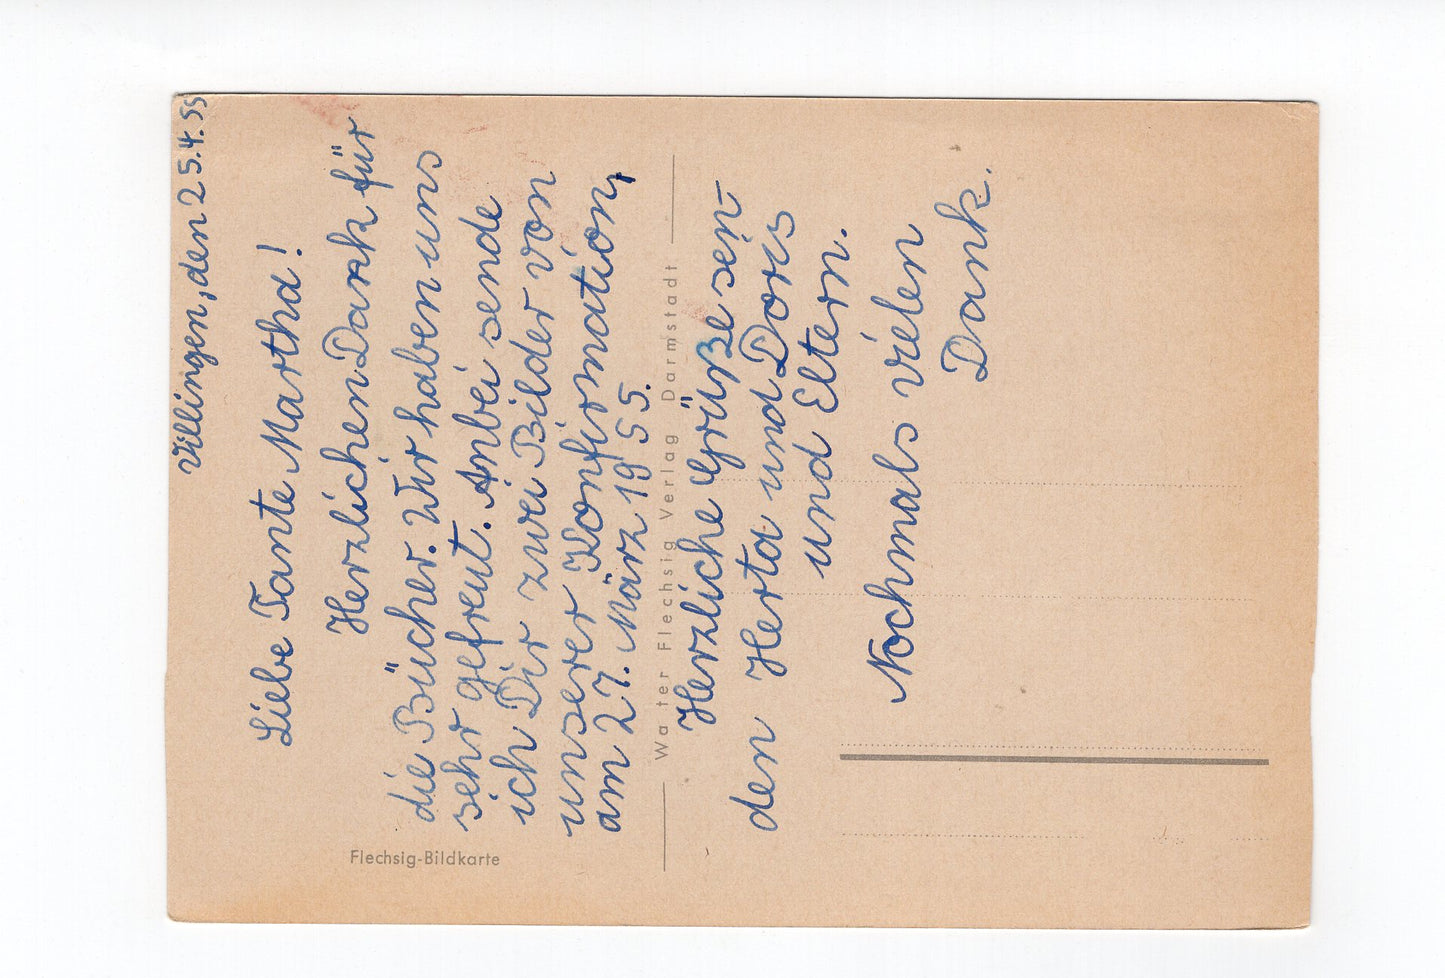 Villingen, den 25.4.55
Liebe Tante Martha!
Herzlichen Dank für
die Bücher. Wir haben uns
sehr gefreut. Anbei sende
ich Dir zwei Bilder von
unserer Konfirmation,
am 27. März 1955.
Herzliche Grüße sen-
den Herta und Doris
und Eltern.
Nochmals vielen
Dank.
Walter Flechsig Verlag Darmstadt
Flechsig-Bildkarte